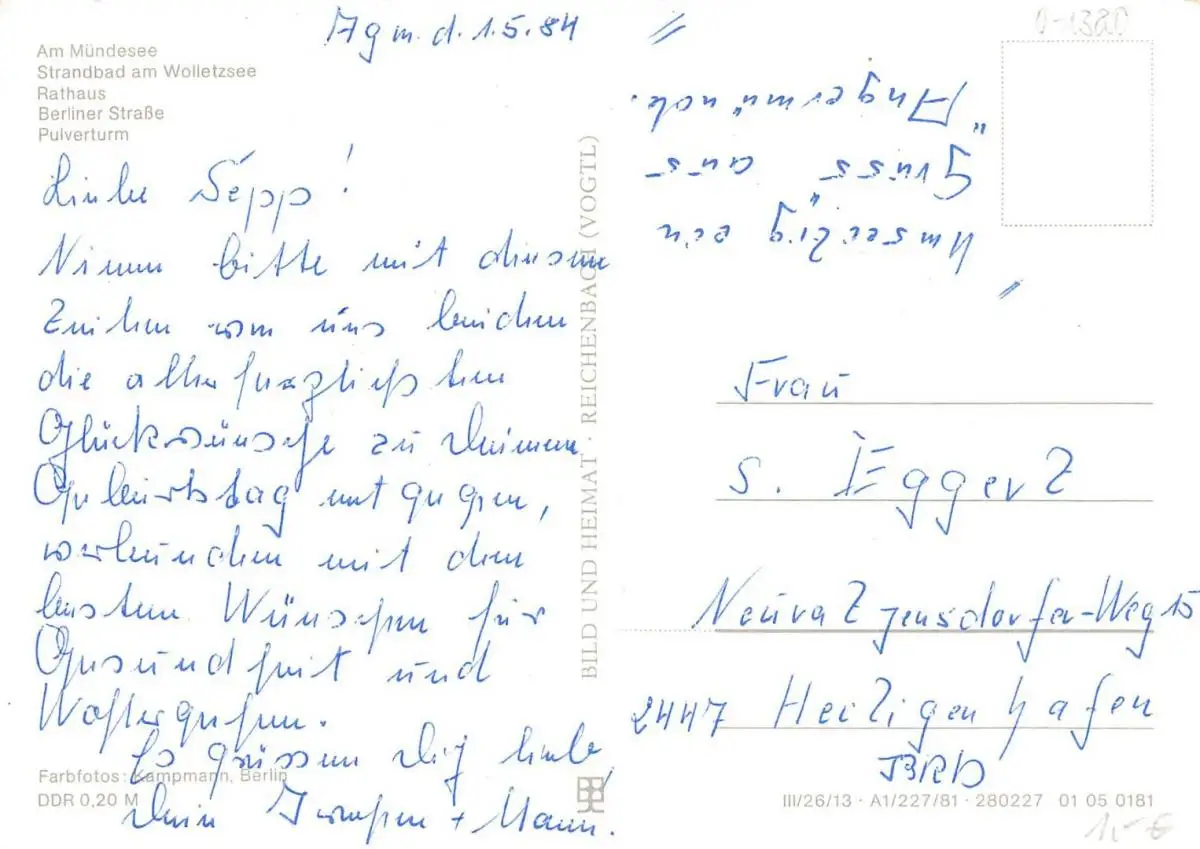 Agm. d. 1.5.84
0-1380
Am Mündesee
Strandbad am Wolletzsee
Rathaus
Berliner Straße
Pulverturm
Liebe Sepp!
Nimm bitte mit diesem
Zeichen von uns beiden
die allerherzlichsten
Glückwünsche zu Deinem
Geburtstag entgegen,
verbunden mit den
besten Wünschen für
Gesundheit und
Wohlergehen.
Es grüssen Dich liebe
Dein + Mann.
Farbfotos: Kampmann, Berlin
DDR 0,20 M
BILD UND HEIMAT · REICHENBACH (VOGTL)
ein
Gruss aus
"Angermünde.
Frau
S. Eggerz
Weg 15
2447 Heiligenhafen
BRD
III/26/13 · A1/227/81 · 280227 01 05 0181
1,- €